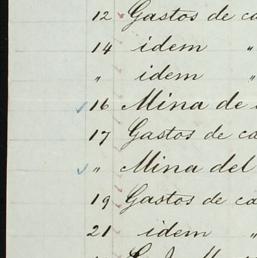 12 Gastos de ca
14 idem "
" idem "
16 Mina de
17 Gastos de ca
" Mina del
19 Gastos de ca
21 idem "